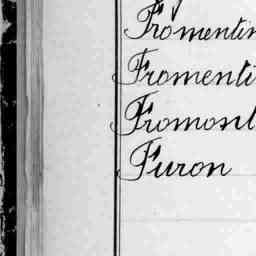 Fromentin
Fromenti
Fromont
Furon